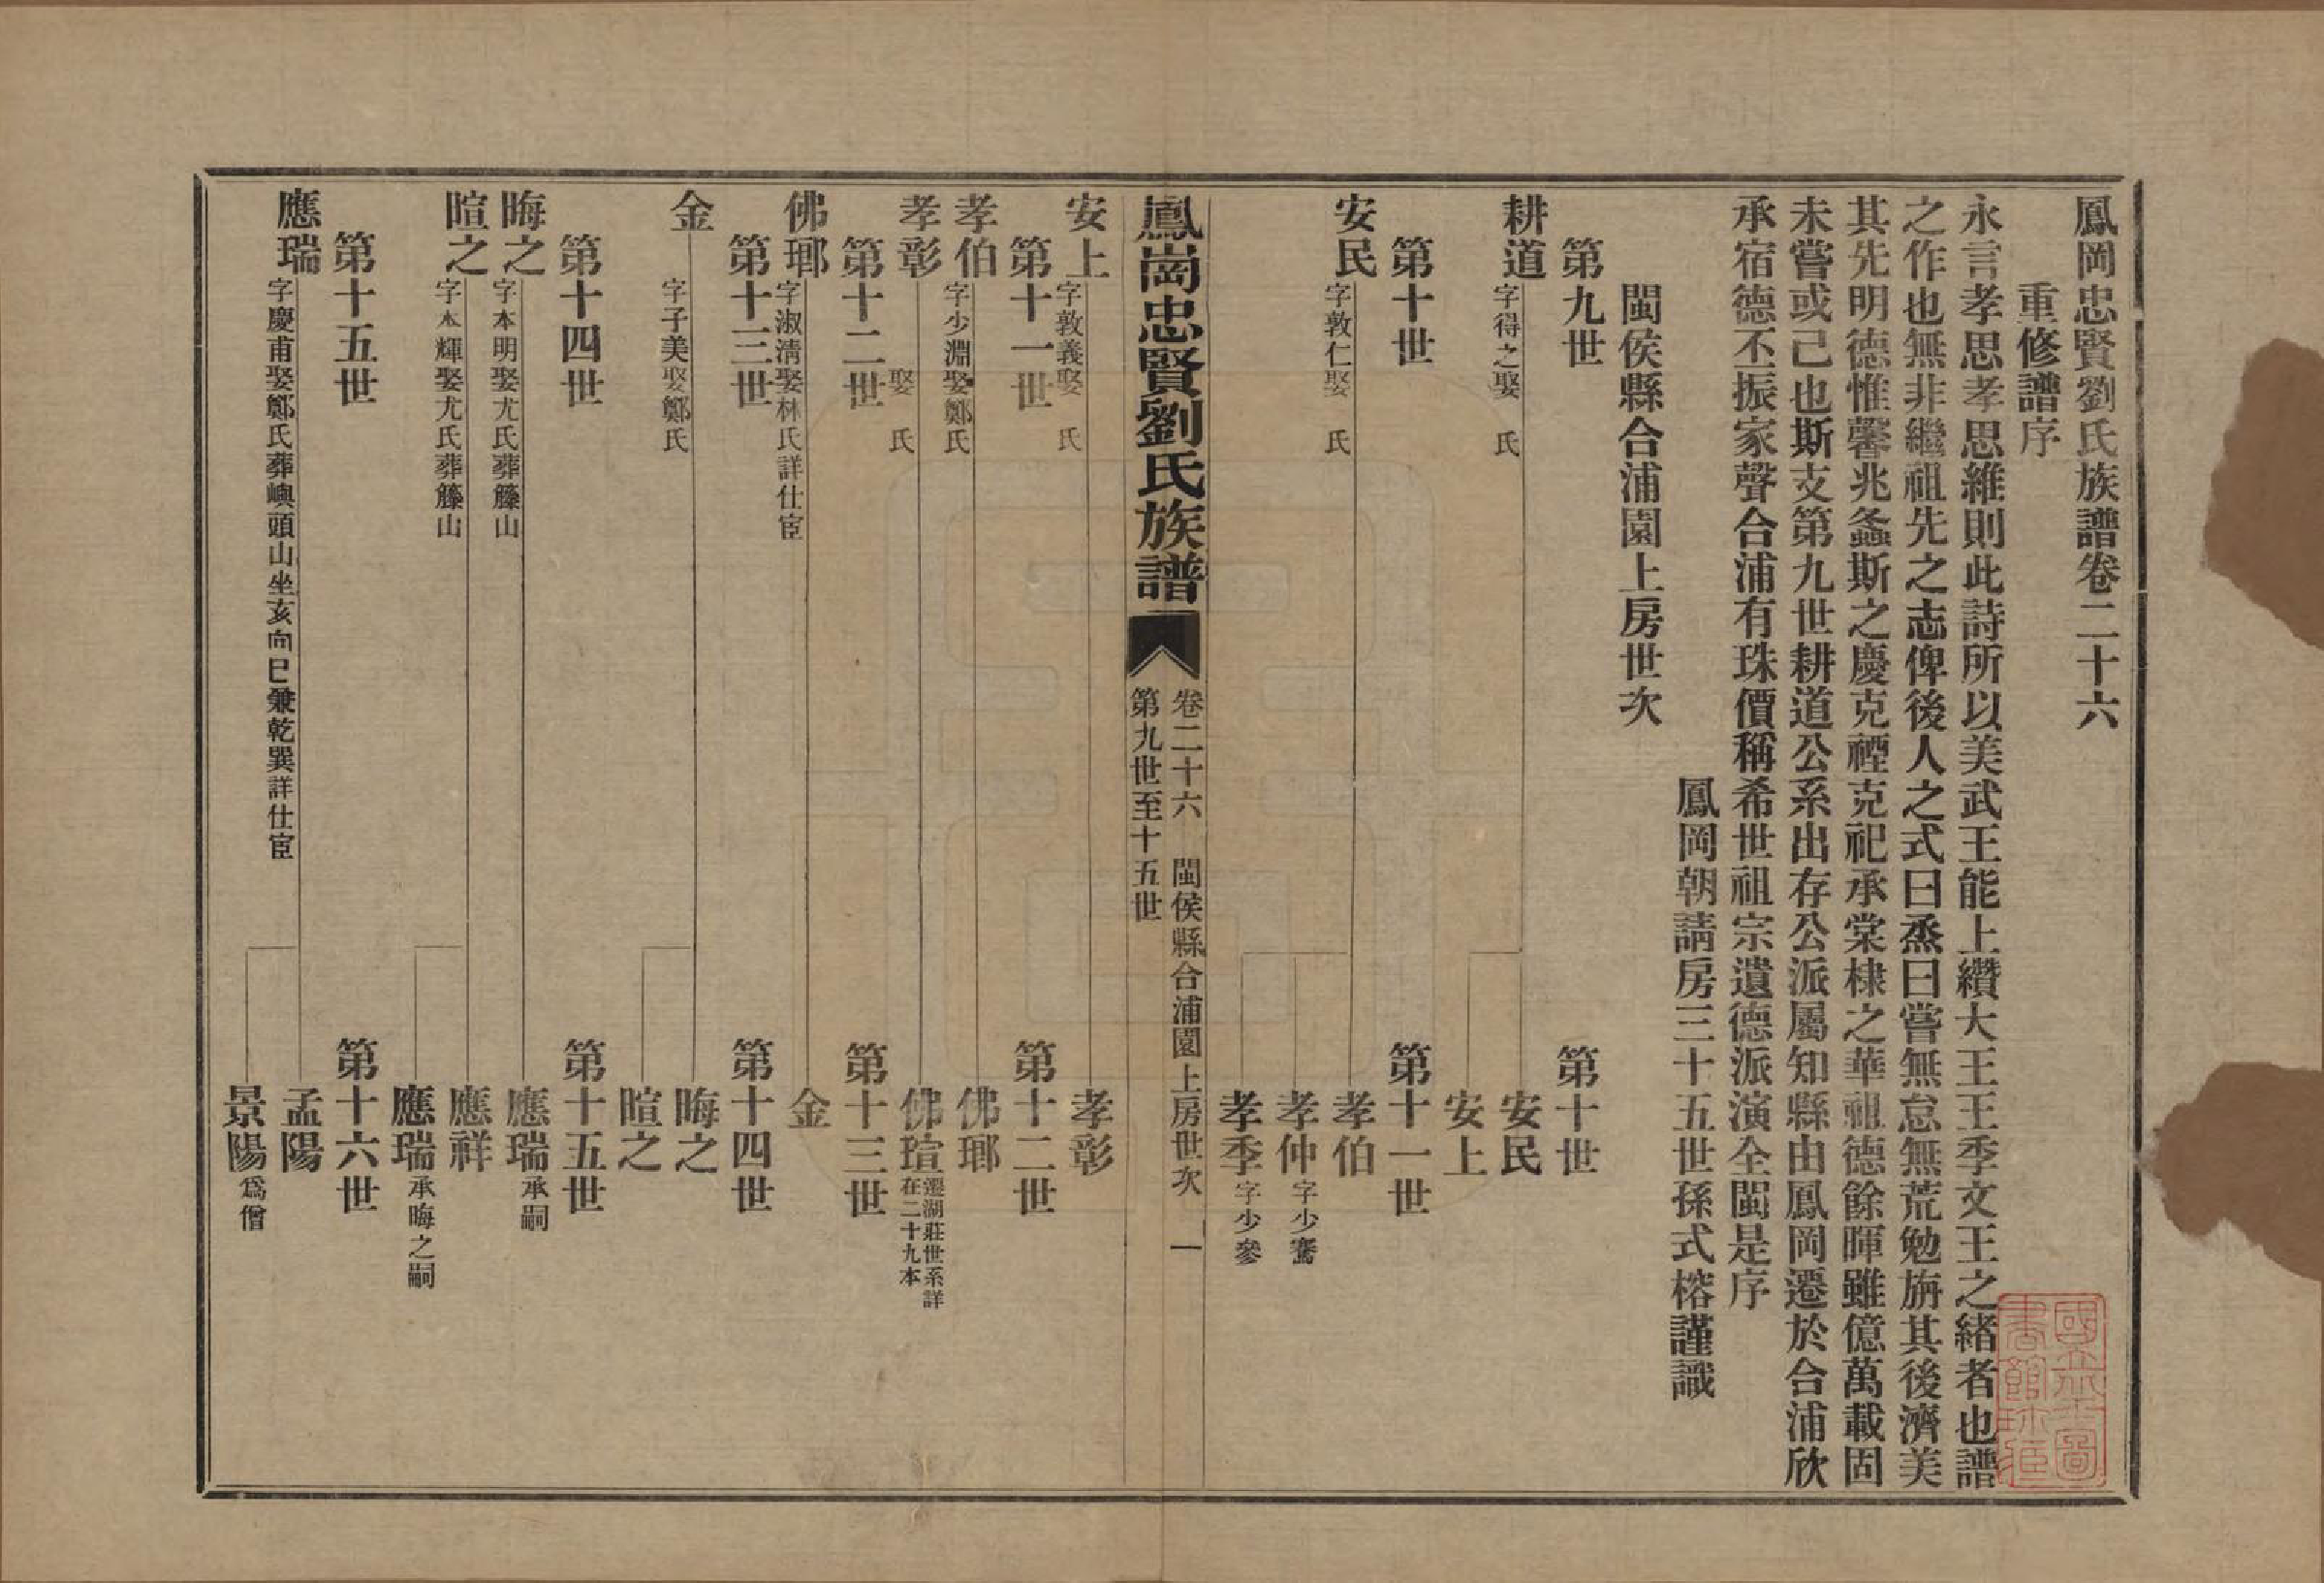 鳳岡忠賢劉氏族譜卷二十六
重修譜序
永言孝思孝思維則此詩所以美武王能上纘大王王季文王之緒者也譜
之作也無非繼祖先之志俾後人之式曰烝曰嘗無怠無荒勉旃其後濟美
其先明德惟馨兆螽斯之慶克禋克祀承棠棣之華祖德餘暉雖億萬載固
未嘗或己也斯支第九世耕道公系出存公派屬知縣由鳳岡遷於合浦欣
承宿德丕振家聲合浦有珠價稱希世祖宗遺德派演全閩是序
鳳岡朝請房三十五世孫式榕謹識
閩侯縣合浦園上房世次
第九世
第十世
耕道
字得之娶 氏
安民
安上
第十世
第十一世
安民
字敦仁娶 氏
孝伯
孝仲
字少騫
孝季
字少參
鳳崗忠賢劉氏族譜
卷二十六 閩侯縣合浦園上房世次 一
第九世至十五世
安上
字敦義娶 氏
孝彰
第十一世
第十二世
孝伯
字少淵娶鄭氏
佛瑘
孝彰
娶 氏
佛瑄
遷湖莊世系詳
在二十九本
第十二世
第十三世
佛瑘
字淑清娶林氏詳仕宦
金
第十三世
第十四世
金
字子美娶鄭氏
晦之
暄之
第十四世
第十五世
晦之
字本明娶尤氏葬籐山
應瑞
承嗣
暄之
字本輝娶尤氏葬籐山
應祥
應瑞
承晦之嗣
第十五世
第十六世
應瑞
字慶甫娶鄭氏葬嶼頭山坐亥向巳兼乾巽詳仕宦
孟陽
景陽
爲僧